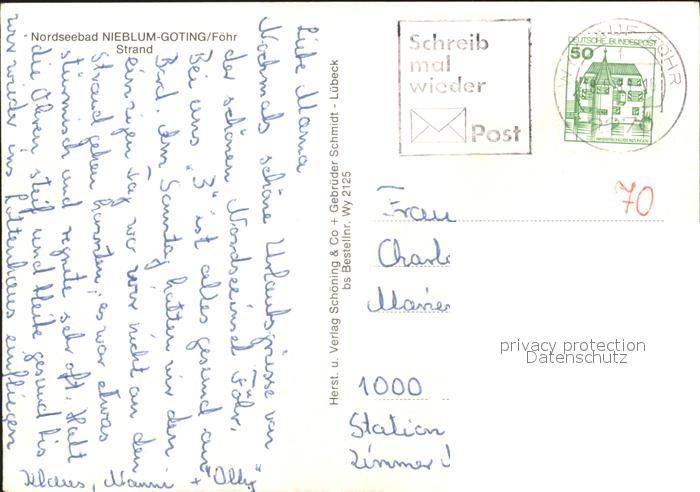 Nordseebad NIEBLUM-GOTING/Föhr
Strand
Liebe Mama
Nochmals schöne Urlaubsgrüsse von
der schönen Nordseeinsel Föhr.
Bei uns "3" ist alles gesund an
Bord. Am Sonntag hatten wir den
einzigen Tag wo wir nicht an den
Strand gehen konnten, es war etwas
stürmisch und regnete sehr oft. Halt
die Ohren steif und bleibe gesund bis
wir wieder ins
Klaus, Manni + "Olly"
Herst. u. Verlag Schöning & Co + Gebrüder Schmidt - Lübeck
bs Bestellnr. Wy 2125
Schreib
mal
wieder
Post
DEUTSCHE BUNDESPOST
50
FÖHR
70
Frau
1000
Station
Zimmer
privacy protection
Datenschutz